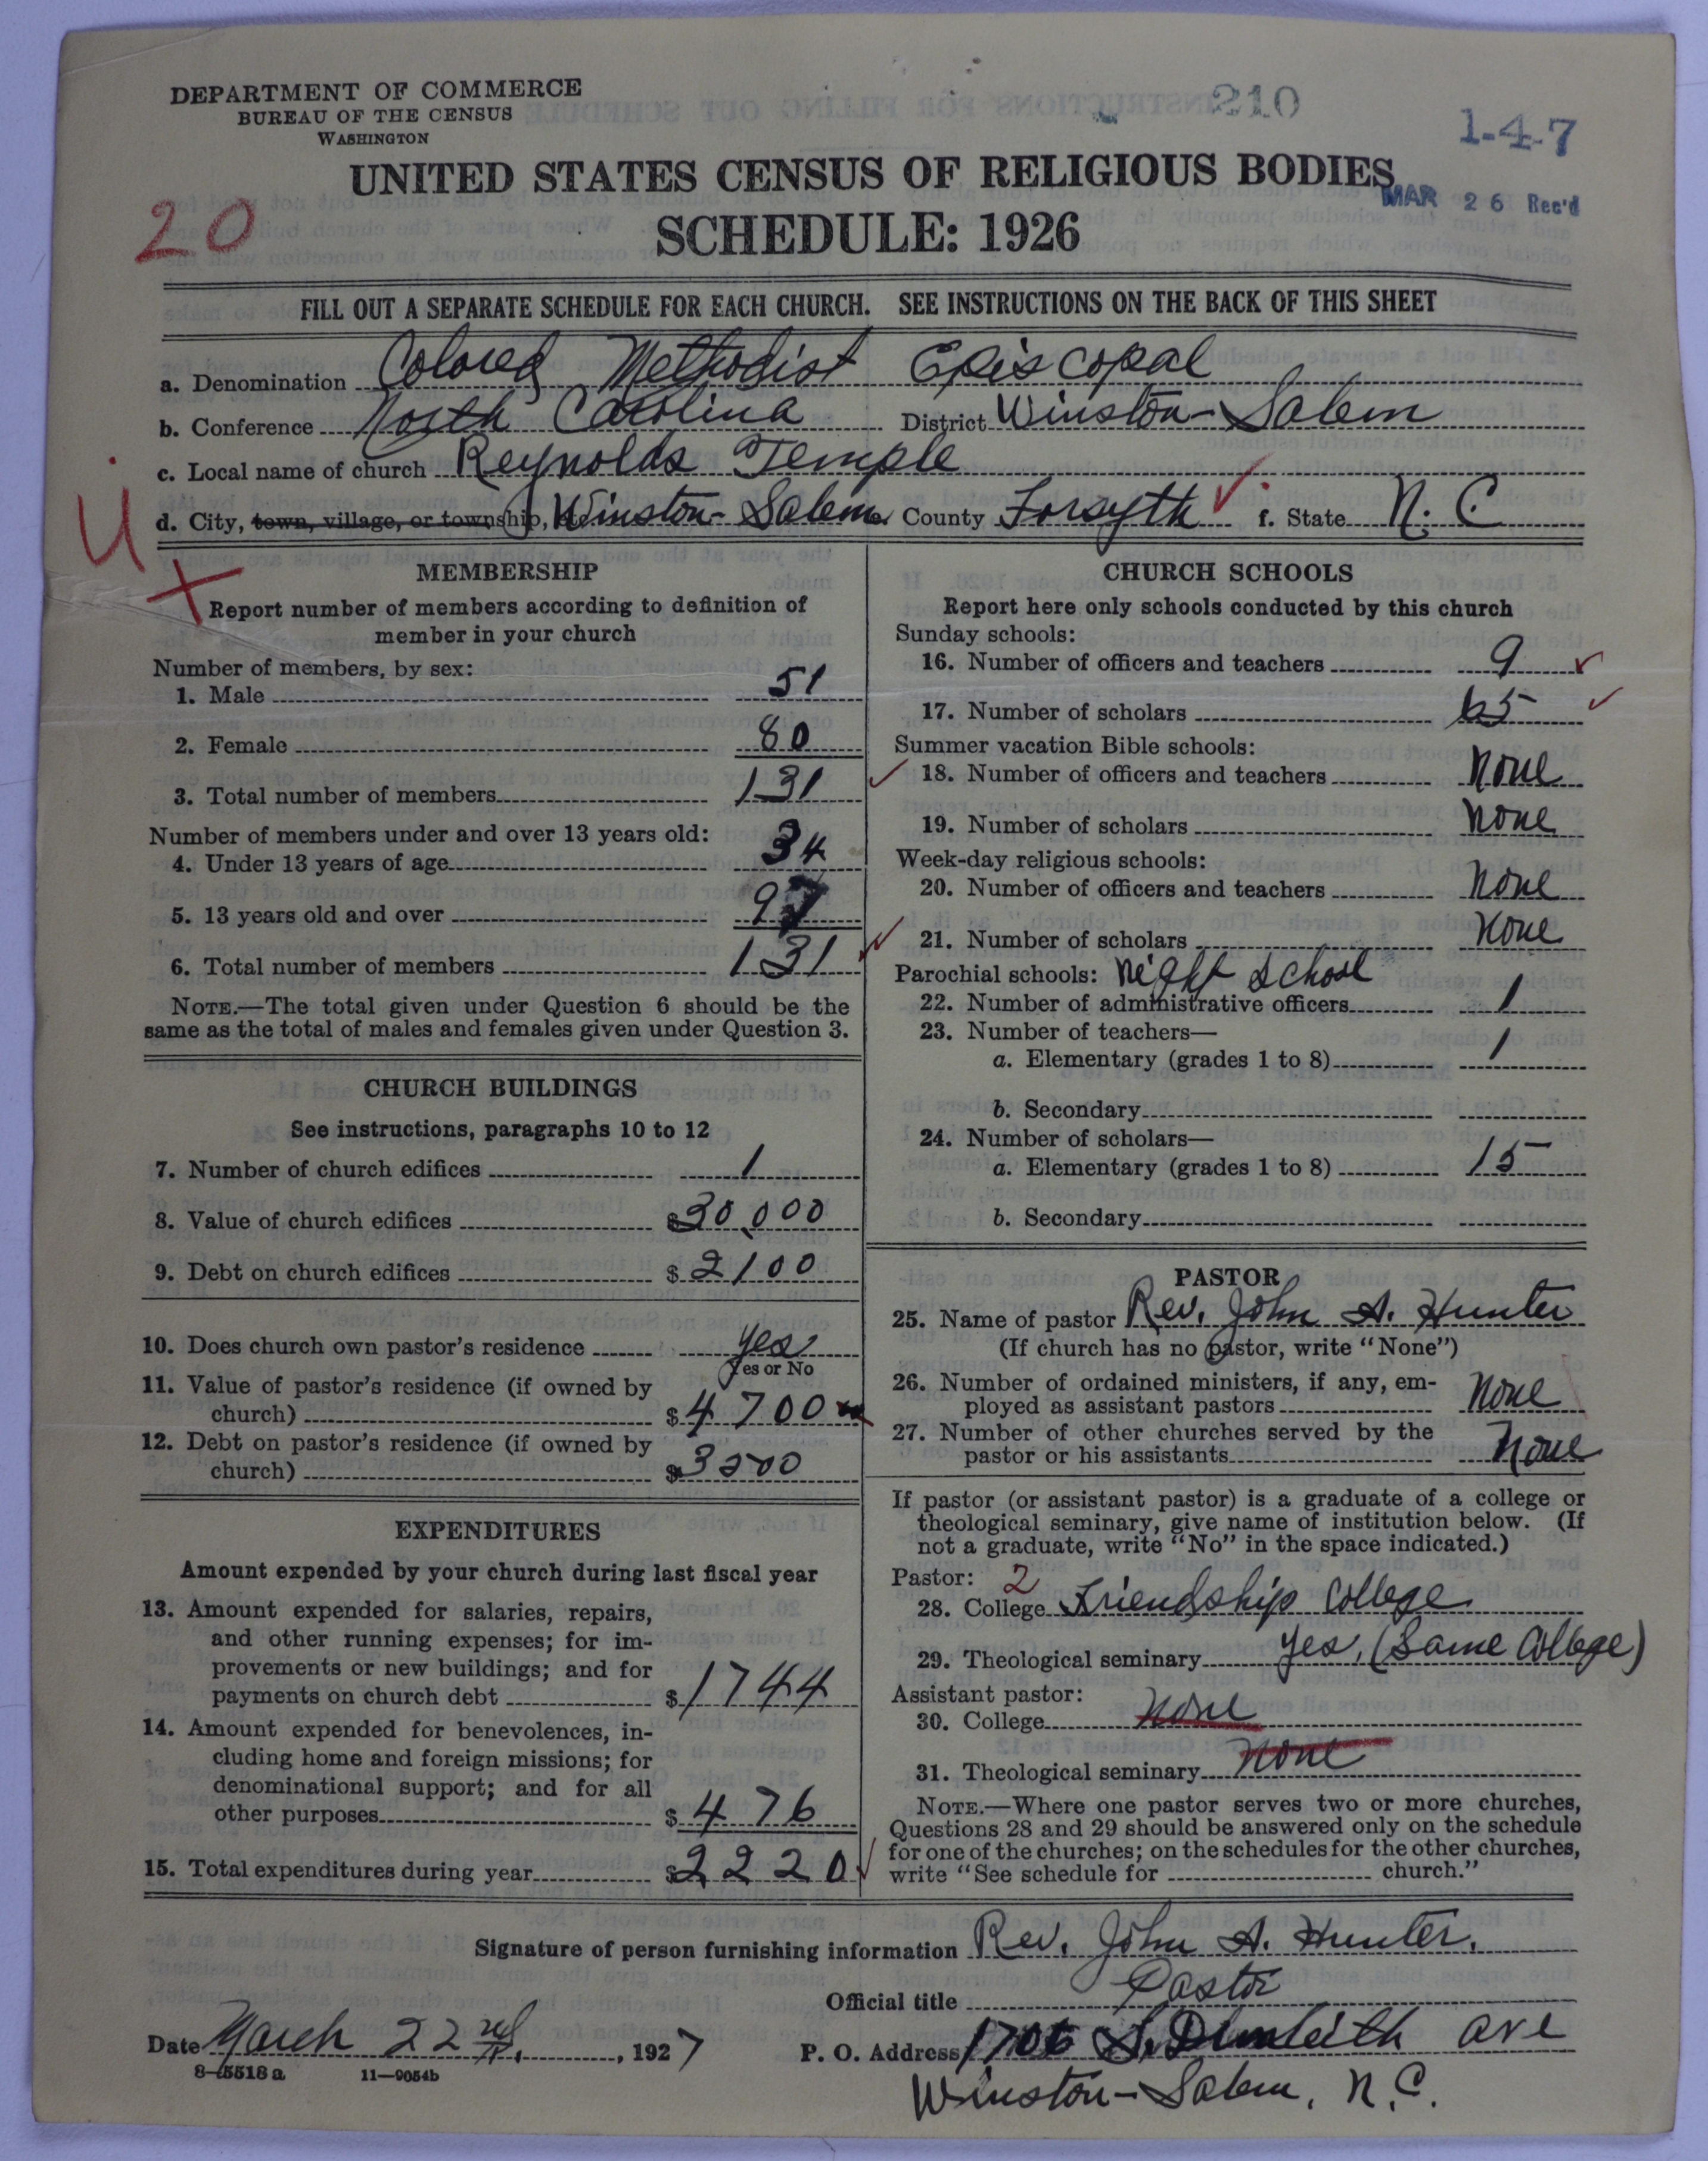 DEPARTMENT OF COMMERCE
BUREAU OF THE CENSUS
WASHINGTON
210
1-4-7
UNITED STATES CENSUS OF RELIGIOUS BODIES
MAR 26 Rec'd
20
SCHEDULE: 1926
FILL OUT A SEPARATE SCHEDULE FOR EACH CHURCH. SEE INSTRUCTIONS ON THE BACK OF THIS SHEET
a. Denomination Colored Methodist Episcopal
b. Conference North Carolina District Winston-Salem
c. Local name of church Reynolds Temple
d. City, town, village, or township, Winston-Salem County Forsyth f. State N. C.
U
MEMBERSHIP
Report number of members according to definition of
member in your church
Number of members, by sex:
1. Male 51
2. Female 80
3. Total number of members 131
Number of members under and over 13 years old:
4. Under 13 years of age 34
5. 13 years old and over 97
6. Total number of members 131
NOTE.—The total given under Question 6 should be the
same as the total of males and females given under Question 3.
CHURCH BUILDINGS
See instructions, paragraphs 10 to 12
7. Number of church edifices 1
8. Value of church edifices $30,000
9. Debt on church edifices $2100
10. Does church own pastor's residence yes
Yes or No
11. Value of pastor's residence (if owned by
church) $4700
12. Debt on pastor's residence (if owned by
church) $3500
EXPENDITURES
Amount expended by your church during last fiscal year
13. Amount expended for salaries, repairs,
and other running expenses; for im-
provements or new buildings; and for
payments on church debt $1744
14. Amount expended for benevolences, in-
cluding home and foreign missions; for
denominational support; and for all
other purposes $476
15. Total expenditures during year $2220
CHURCH SCHOOLS
Report here only schools conducted by this church
Sunday schools:
16. Number of officers and teachers 9
17. Number of scholars 65
Summer vacation Bible schools:
18. Number of officers and teachers None
19. Number of scholars None
Week-day religious schools:
20. Number of officers and teachers None
21. Number of scholars None
Parochial schools: Night School
22. Number of administrative officers 1
23. Number of teachers—
a. Elementary (grades 1 to 8) 1
b. Secondary
24. Number of scholars—
a. Elementary (grades 1 to 8) 15
b. Secondary
PASTOR
25. Name of pastor Rev. John A. Hunter
(If church has no pastor, write "None")
26. Number of ordained ministers, if any, em-
ployed as assistant pastors None
27. Number of other churches served by the
pastor or his assistants None
If pastor (or assistant pastor) is a graduate of a college or
theological seminary, give name of institution below. (If
not a graduate, write "No" in the space indicated.)
Pastor: 2
28. College Friendship College
29. Theological seminary yes, (Same College)
Assistant pastor:
30. College None
31. Theological seminary None
NOTE.—Where one pastor serves two or more churches,
Questions 28 and 29 should be answered only on the schedule
for one of the churches; on the schedules for the other churches,
write "See schedule for church."
Signature of person furnishing information Rev. John A. Hunter.
Official title Pastor
Date March 22nd, 1927
P. O. Address 1706 S. Dunleith ave
Winston-Salem, N.C.
8-5518 a 11-9054b